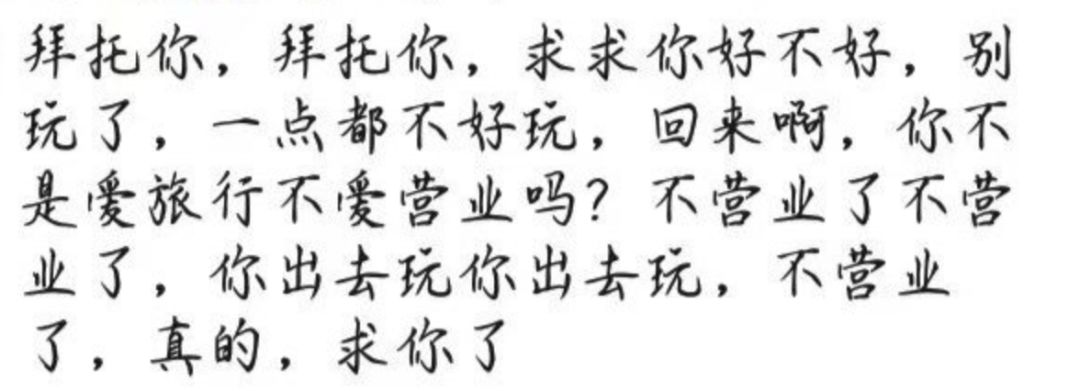 拜托你，拜托你，求求你好不好，别
玩了，一点都不好玩，回来啊，你不
是爱旅行不爱营业吗？不营业了不营
业了，你出去玩你出去玩，不营业
了，真的，求你了